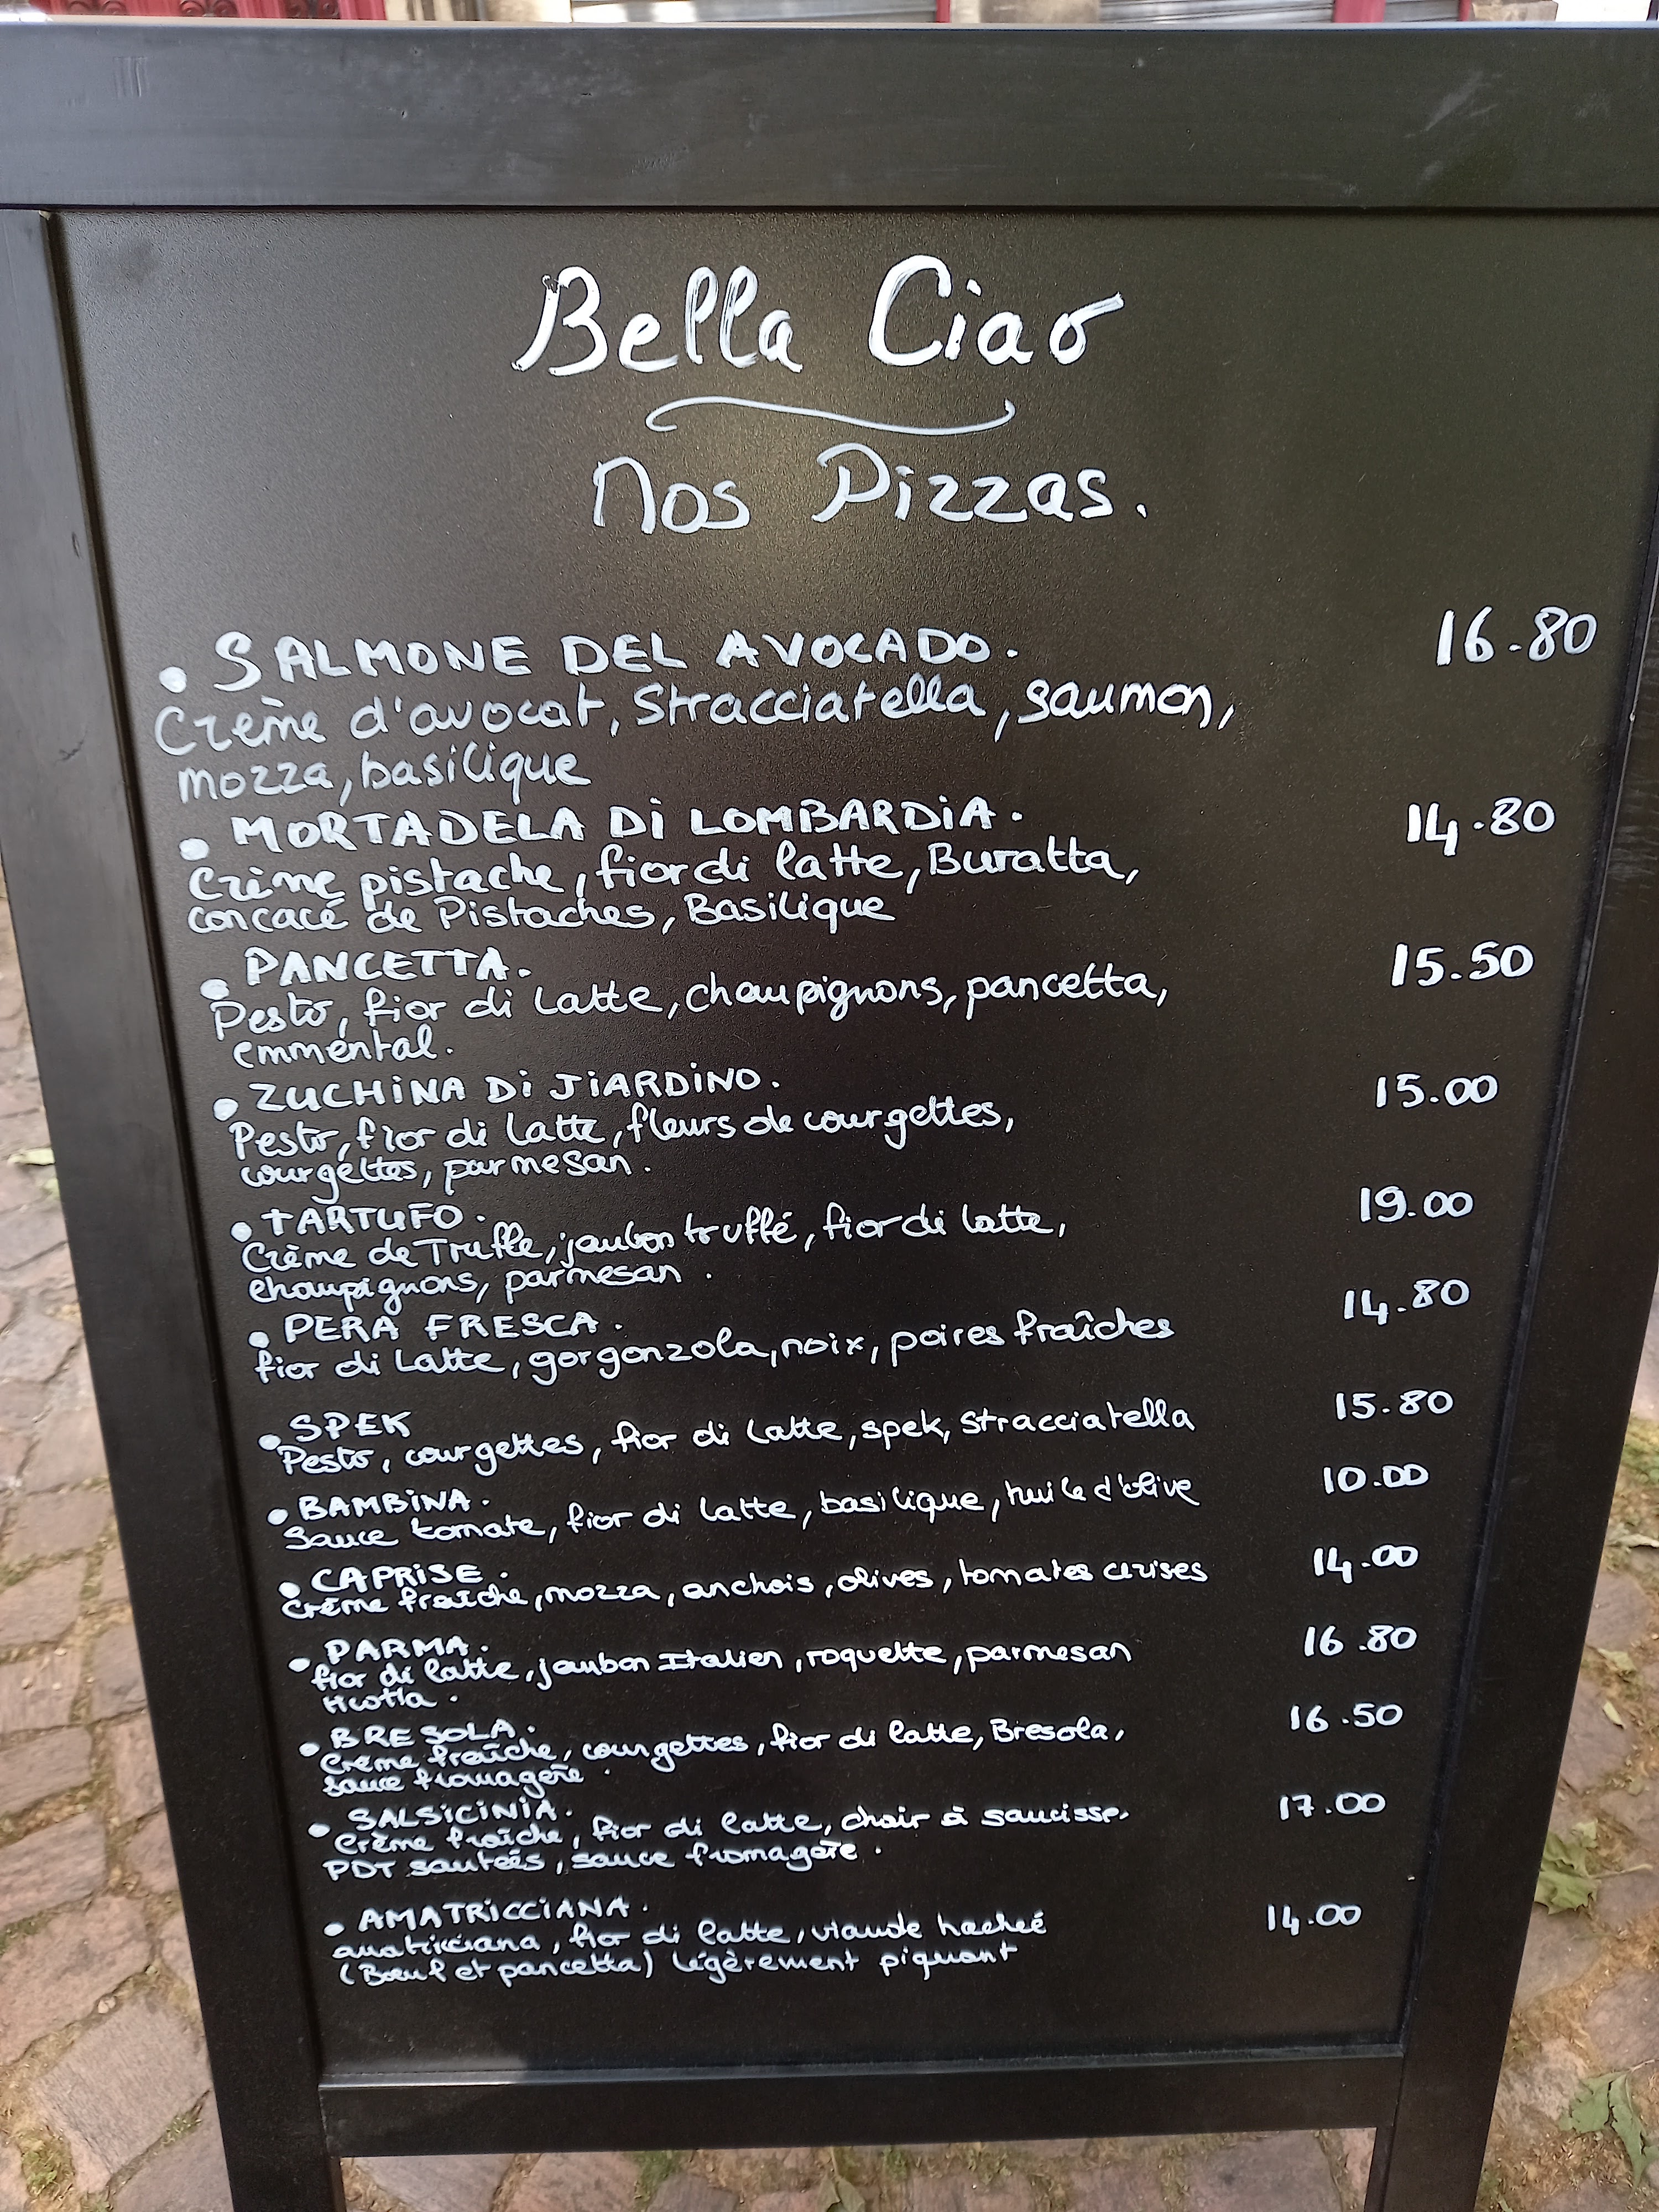 Bella Ciao
Nos Pizzas.
• SALMONE DEL AVOCADO. 16.80
Crème d'avocat, Stracciatella, saumon,
mozza, basilique
• MORTADELA Di LOMBARDiA. 14.80
Crème pistache, fior di latte, Buratta,
concacé de Pistaches, Basilique
• PANCETTA. 15.50
Pesto, fior di Latte, champignons, pancetta,
emmental.
• ZUCHiNA Di JiARDiNO. 15.00
Pesto, fior di latte, fleurs de courgettes,
courgettes, parmesan.
• TARTUFO. 19.00
Crème de Truffe, jambon truffé, fior di latte,
champignons, parmesan.
• PERA FRESCA. 14.80
fior di Latte, gorgonzola, noix, poires fraîches
• SPEK 15.80
Pesto, courgettes, fior di Latte, spek, stracciatella
• BAMBiNA. 10.00
Sauce tomate, fior di latte, basilique, huile d'olive
• CAPRiSE. 14.00
Crème fraîche, mozza, anchois, olives, tomates cerises
• PARMA. 16.80
fior di latte, jambon Italien, roquette, parmesan
ricotta.
• BRESOLA. 16.50
Crème fraîche, courgettes, fior di latte, Bresola,
sauce fromagère.
• SALSiCiNiA. 17.00
Crème fraîche, fior di latte, chair à saucisse,
PDT sautées, sauce fromagère.
• AMATRiCCiANA. 14.00
amatricciana, fior di latte, viande hacheé
(Bœuf et pancetta) légèrement piquant